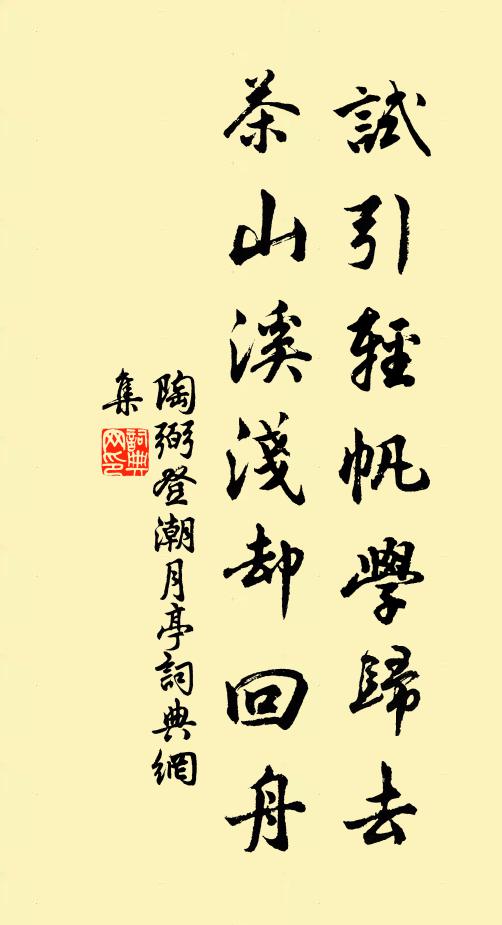 試引輕帆學歸去
茶山溪淺却回舟
陶弼登潮月亭詞典網
集
詞典
网印